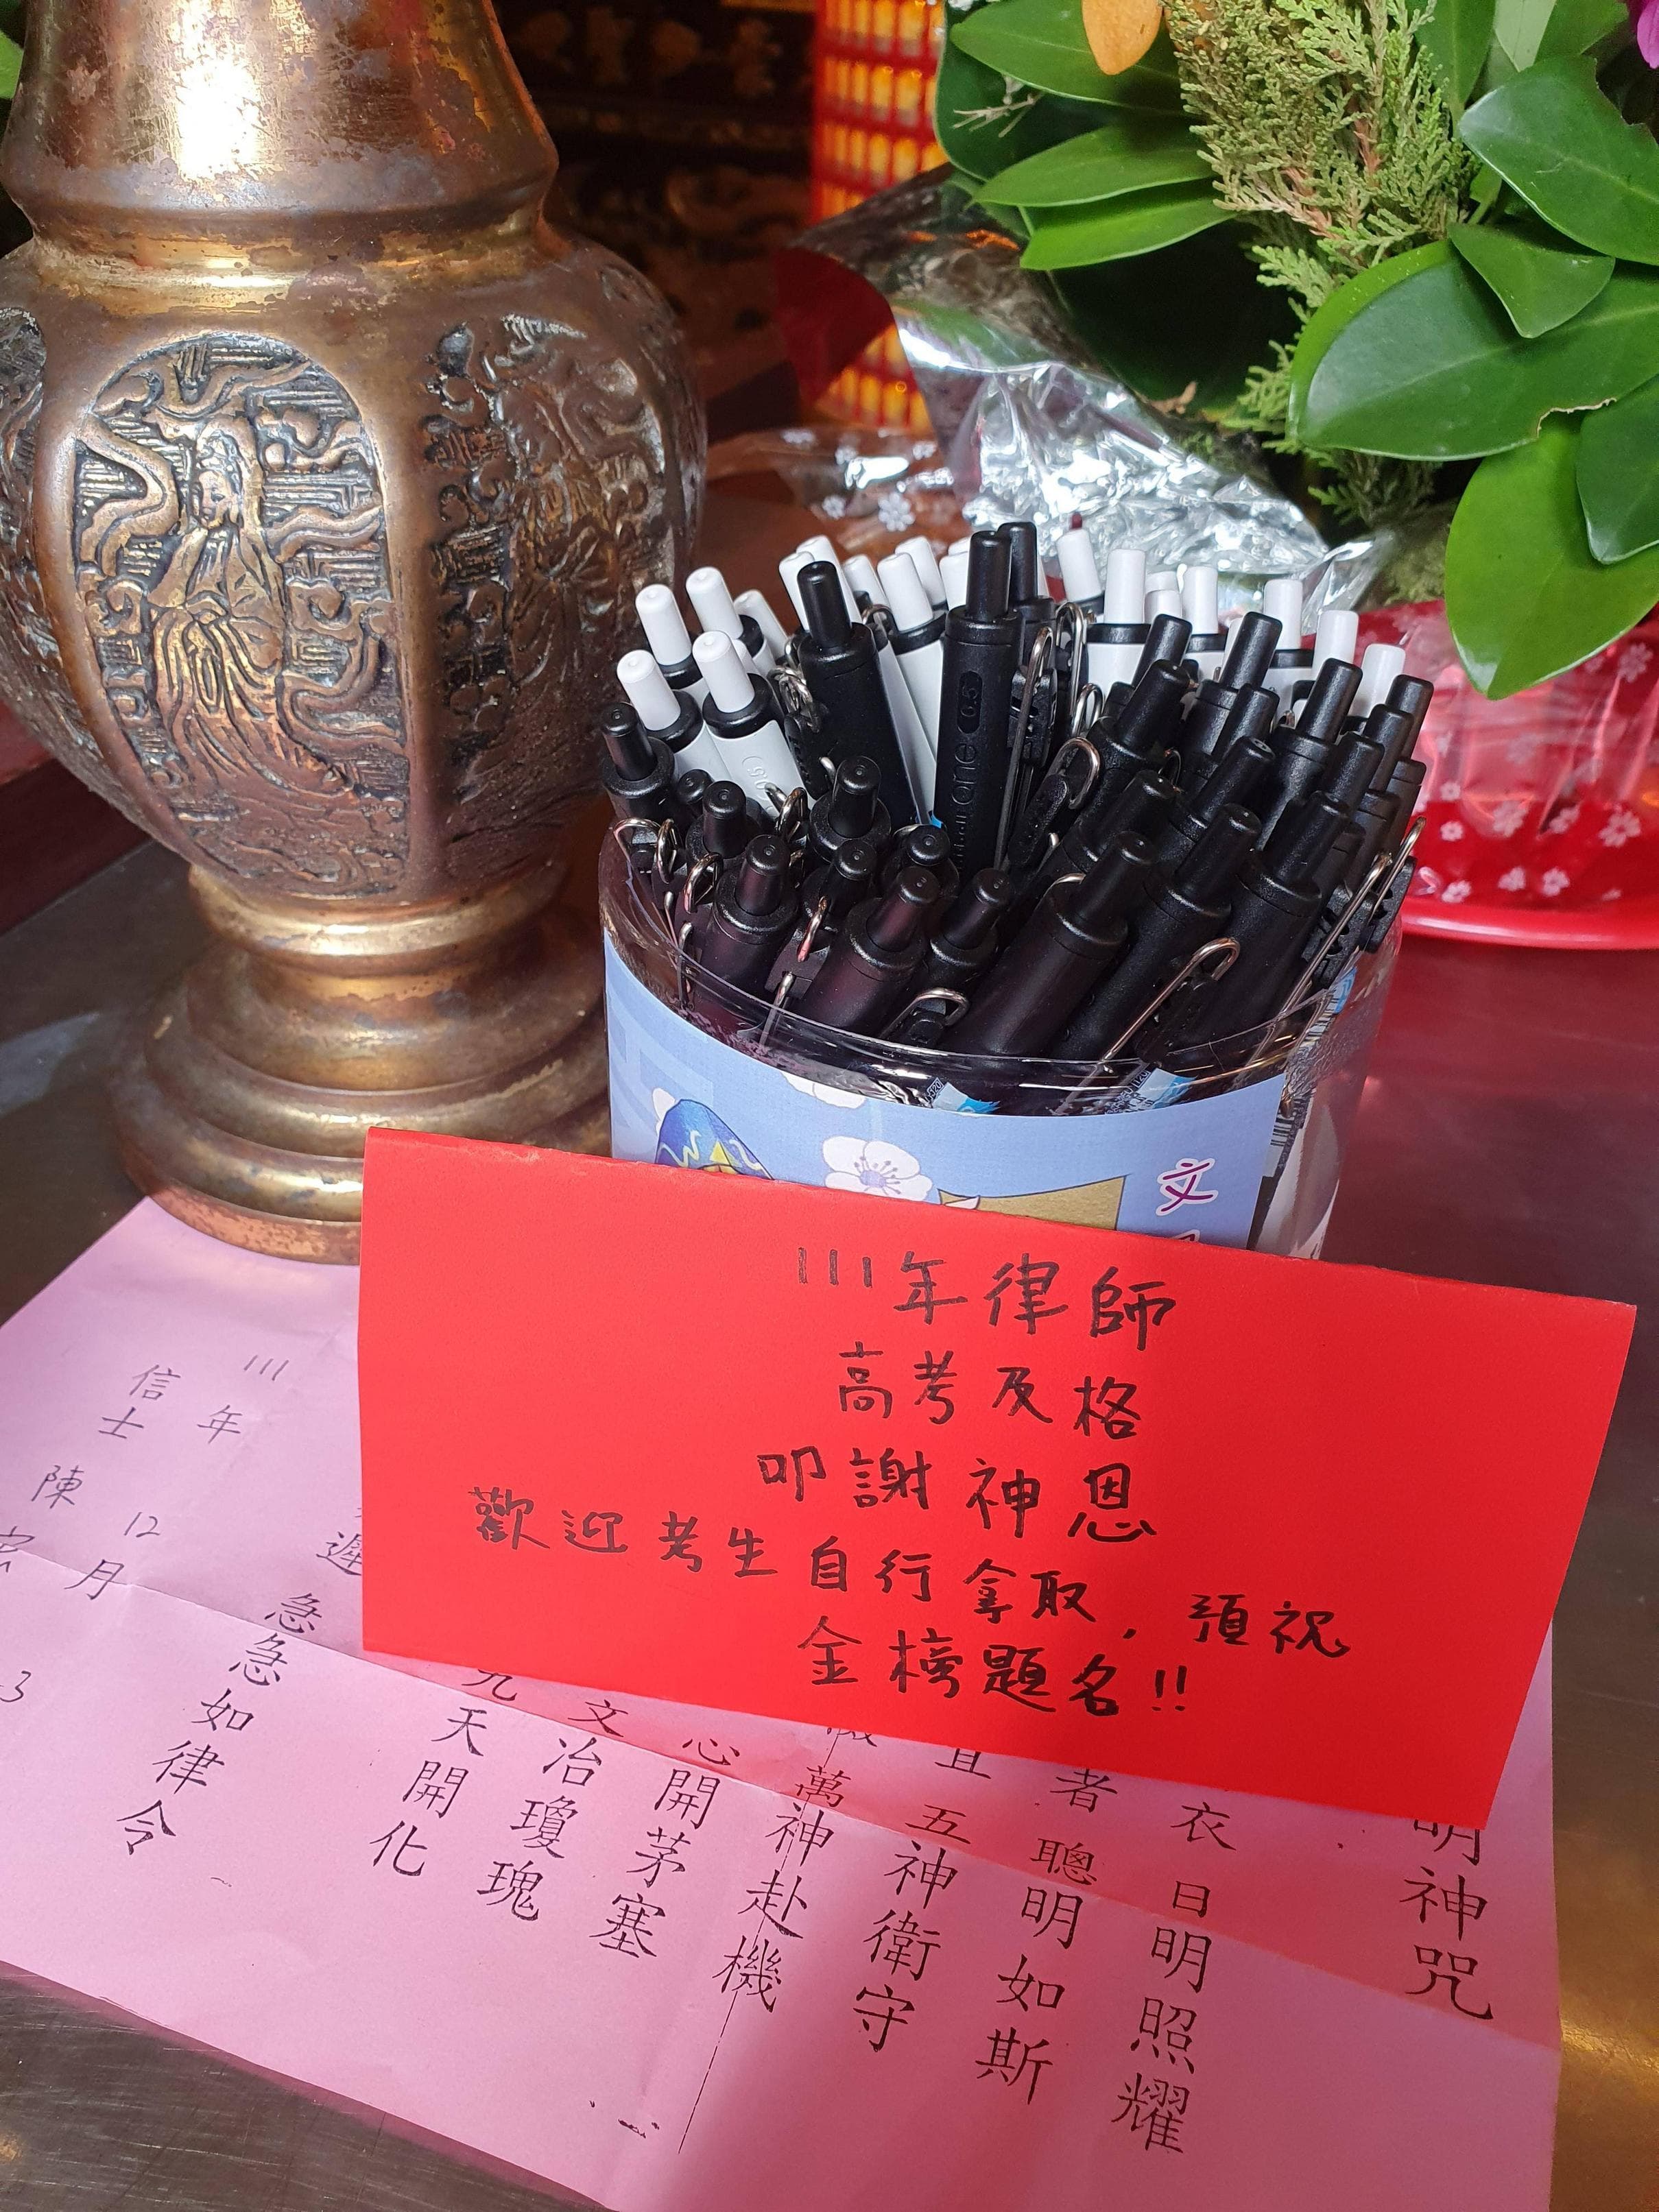 0.5
one
文
111年律師
高考及格
叩謝神恩
歡迎考生自行拿取,預祝
金榜題名!!
明神咒
衣日明照耀
者聰明如斯
宜五神衛守
萬神赴機
心開茅塞
文治瓊瑰
九天開化
遲
急急如律令
111年12月
信士陳